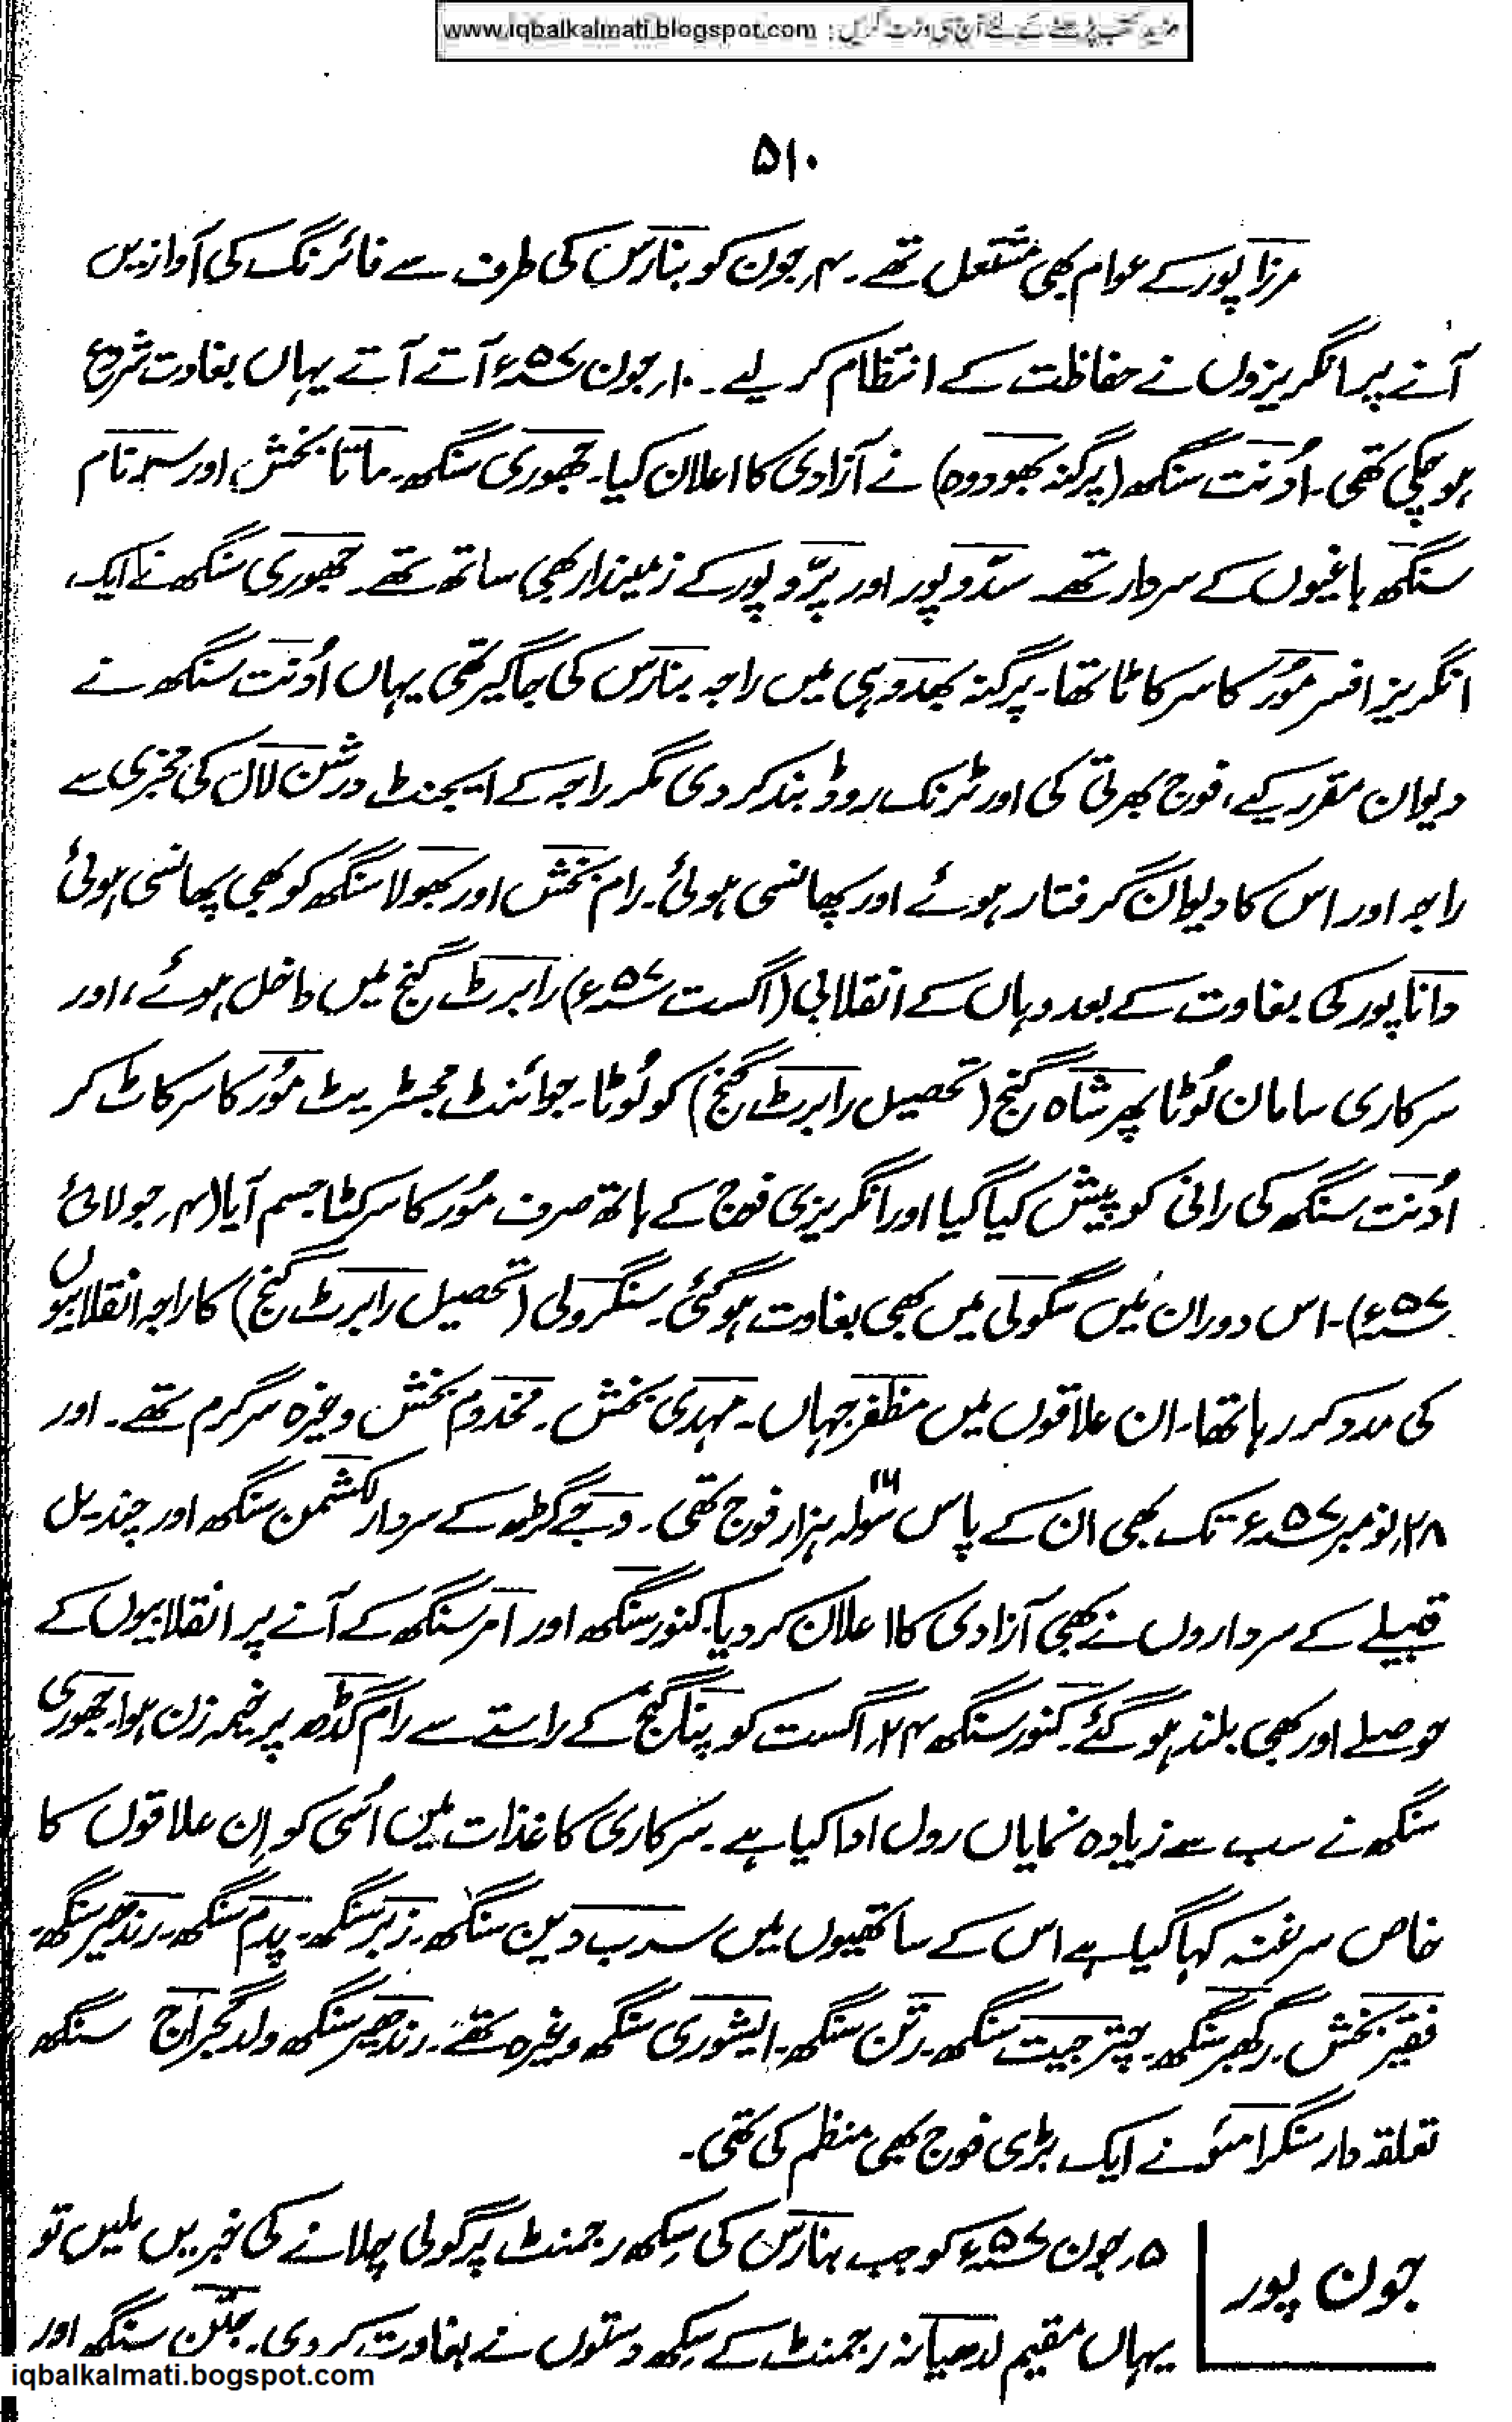 www.iqbalkalmati.blogspot.com : مزید کتب پڑھنے کے لئے آج ہی وزٹ کریں
۵۱۰
مرزا پور کے عوام بھی مشتعل تھے۔ ۴؍جون کو بنارس کی طرف سے فائرنگ کی آوازیں
آنے پر انگریزوں نے حفاظت کے انتظام کر لیے۔ ۱۰؍جون ۵۷ء آتے آتے یہاں بغاوت شروع
ہو چکی تھی۔ اُدنت سنگھ (پرگنہ بھودوہ) نے آزادی کا اعلان کیا۔ جھوری سنگھ۔ ماتا بخش اور سرنام
سنگھ باغیوں کے سردار تھے۔ سدّوپور اور پرّوپور کے زمیندار بھی ساتھ تھے۔ جھوری سنگھ نے ایک
انگریز افسر مُور کا سر کاٹا تھا۔ پرگنہ بھدوہی میں راجہ بنارس کی جاگیر تھی یہاں اُدنت سنگھ نے
دیوان مقرر کیے، فوج بھرتی کی اور ٹرنک روڈ بند کر دی مگر راجہ کے ایجنٹ درشن لال کی مخبری سے
راجہ اور اس کا دیوان گرفتار ہوئے اور پھانسی ہوئی۔ رام بخش اور بھولا سنگھ کو بھی پھانسی ہوئی
دانا پور کی بغاوت کے بعد وہاں کے انقلابی (اگست ۵۷ء) رابرٹ گنج میں داخل ہوئے، اور
سرکاری سامان لُوٹا پھر شاہ گنج (تحصیل رابرٹ گنج) کو لُوٹا۔ جوائنٹ مجسٹریٹ مُور کا سر کاٹ کر
اُدنت سنگھ کی رانی کو پیش کیا گیا اور انگریزی فوج کے ہاتھ صرف مُور کا سر کٹا جسم آیا (۴؍جولائی
۵۷ء)۔ اس دوران میں سگولی میں بھی بغاوت ہو گئی۔ سنگرولی (تحصیل رابرٹ گنج) کا راجہ انقلابیوں
کی مدد کر رہا تھا۔ ان علاقوں میں مظفر جہاں۔ مہدی بخش۔ مخدوم بخش وغیرہ سرگرم تھے۔ اور
۲۸؍نومبر ۵۷ء تک بھی ان کے پاس سولہ ۱۶ ہزار فوج تھی۔ وجے گڑھ کے سردار لکشمن سنگھ اور چندیل
قبیلے کے سرداروں نے بھی آزادی کا اعلان کر دیا۔ کنور سنگھ اور امر سنگھ کے آنے پر انقلابیوں کے
حوصلے اور بھی بلند ہو گئے۔ کنور سنگھ ۲۴؍اگست کو پنا گنج کے راستے سے رام گڈھ پر خیمہ زن ہوا۔ جھوری
سنگھ نے سب سے زیادہ نمایاں رول ادا کیا ہے۔ سرکاری کاغذات میں اُسی کو اِن علاقوں کا
خاص سرغنہ کہا گیا ہے اس کے ساتھیوں میں سرب دین سنگھ۔ زبر سنگھ۔ پدم سنگھ۔ رندھیر سنگھ۔
فقیر بخش۔ رگھبر سنگھ۔ چتر جیت سنگھ۔ رتن سنگھ۔ ایشوری سنگھ وغیرہ تھے۔ رندھیر سنگھ ولد گجراج سنگھ
تعلقہ دار سنگرامئو نے ایک بڑی فوج بھی منظم کی تھی۔
جون پور
۵؍جون ۵۷ء کو جب بنارس کی سِکھ رجمنٹ پر گولی چلانے کی خبریں ملیں تو
یہاں مقیم لدھیانہ رجمنٹ کے سکھ دستوں نے بغاوت کر دی۔ سنگھ اور
iqbalkalmati.bogspot.com